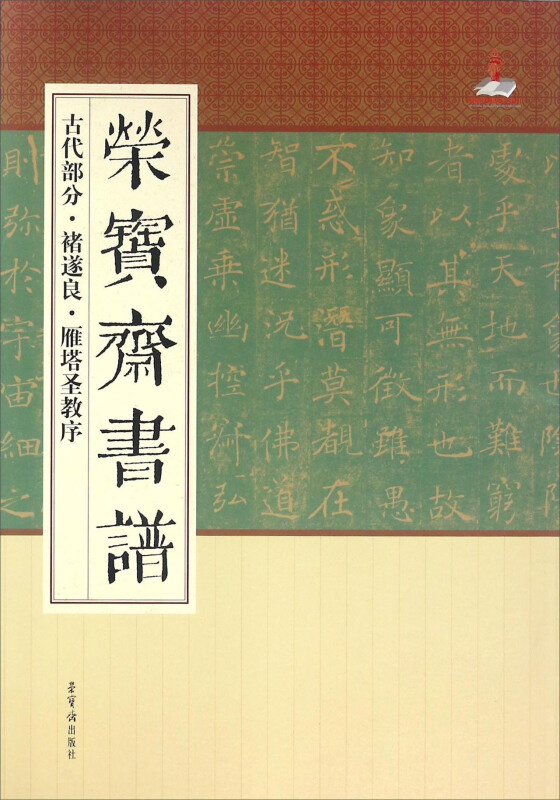 榮寶齋書譜
古代部分·褚遂良·雁塔圣教序
處乎天地而難窮
者以其無形也故
知象顯可徵雖愚
不惑形潛莫覩在
智猶迷況乎佛道
崇虛乗幽控寂弘
則弥於宇宙細之
榮寶齋出版社